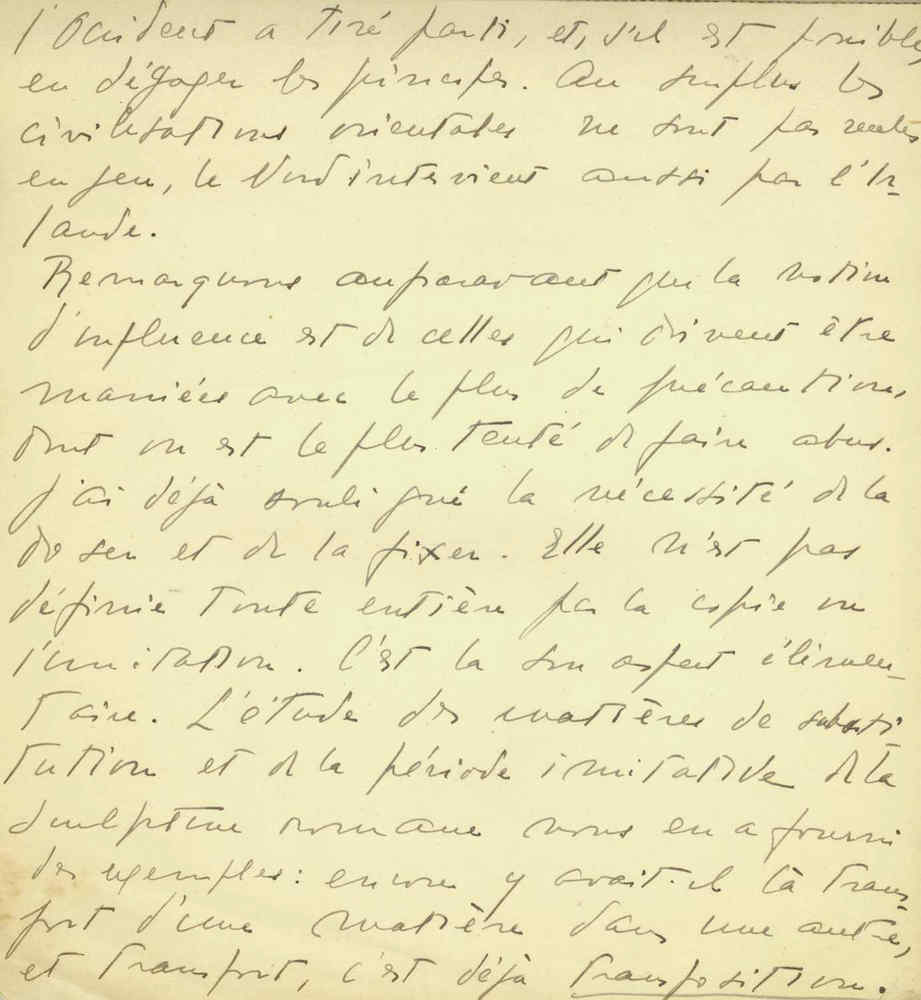 l'Occident a tiré parti, et, s'il est possible,
en dégager les principes. Au surplus les
civilisations orientales ne sont pas seules
en jeu, le Nord intervient aussi par l'Ir-
lande.
Remarquons auparavant que la notion
d'influence est de celles qui doivent être
maniées avec le plus de précautions,
dont on est le plus tenté de faire abus.
J'ai déjà souligné la nécessité de la
doser et de la fixer. Elle n'est pas
définie toute entière par la copie ou
l'imitation. C'est là son aspect élémen-
taire. L'étude des matières de substi
tution et de la période imitative de la
sculpture romane nous en a fourni
des exemples : encore y avait-il là trans-
port d'une matière dans une autre,
et transport, c'est déjà transposition.